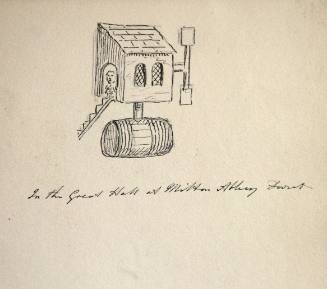 In the Great Hall at Milton Abbey Dorset